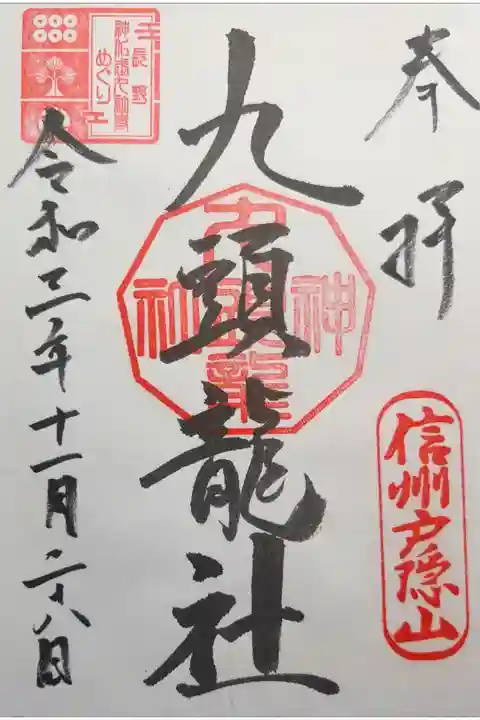 奉拝
信州戸隠山
九頭龍社
九頭龍
神社
長野
めぐり
令和三年十一月二十八日